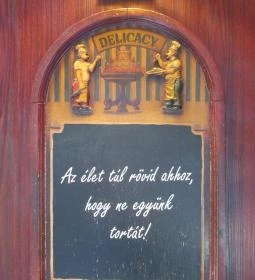 DELICACY
Az élet túl rövid ahhoz,
hogy ne együnk
tortát!